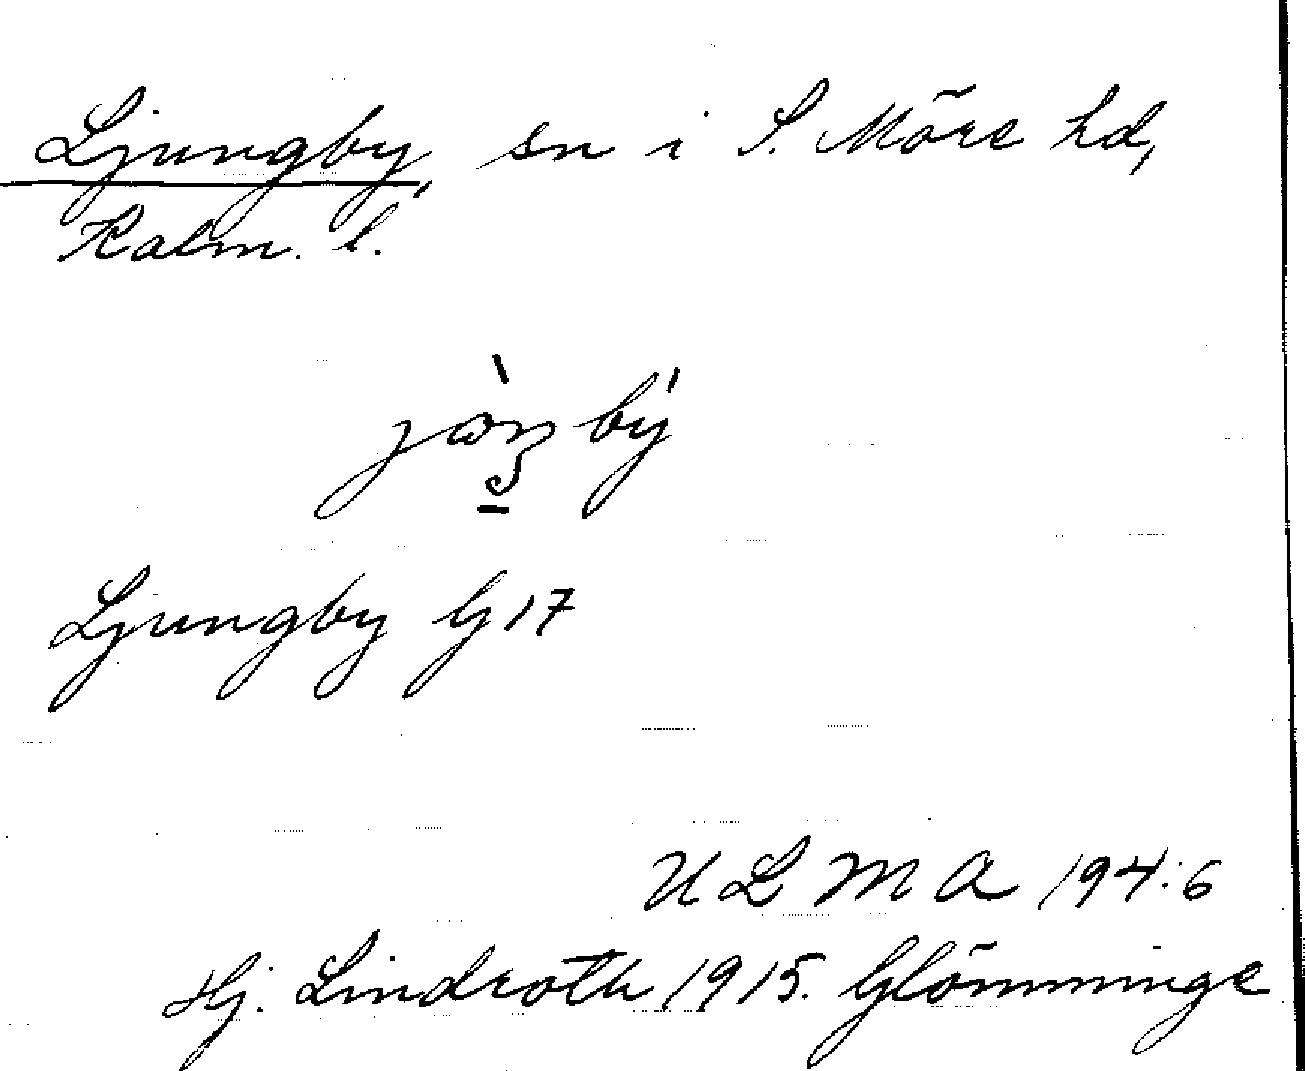 Ljungby, sn i S. Möre hd,
Kalm. l.
Ljungby G 17
ULMA 194:6
Hj. Lindroth 1915. Glömminge